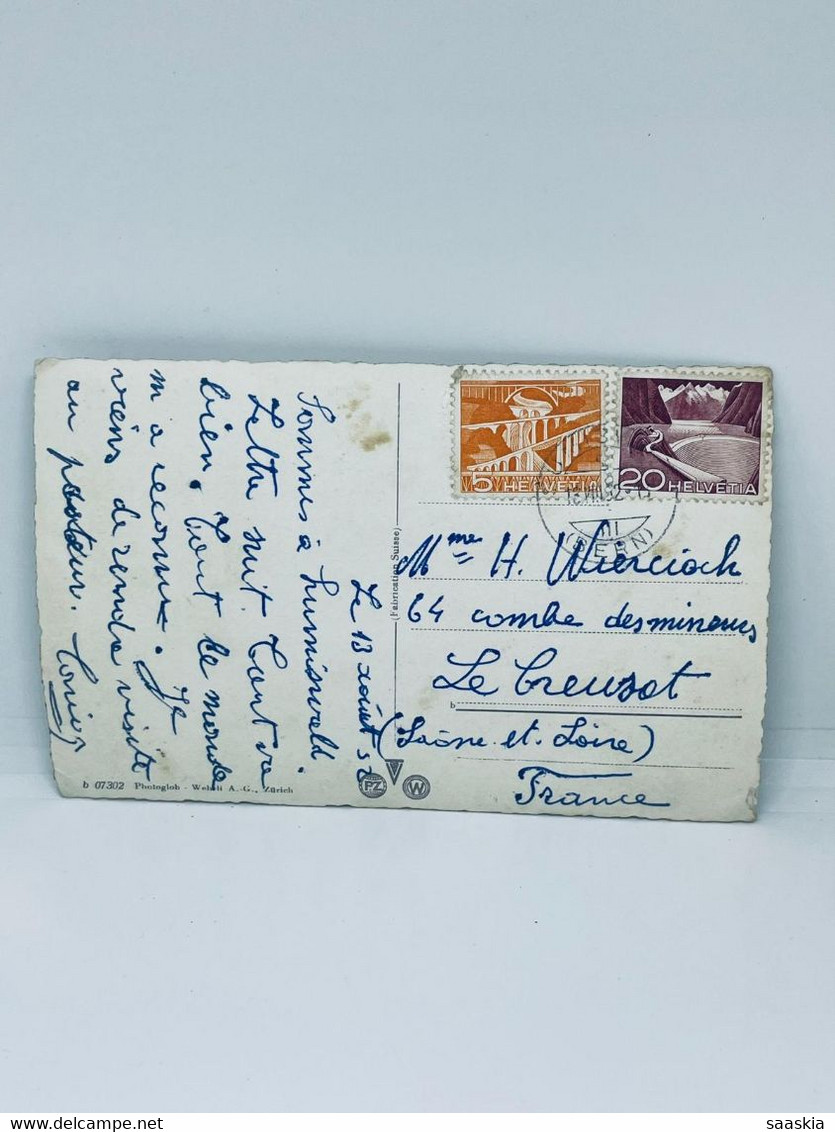 Le 13 août 52
Sommes à Sumiswald
Lettre suit. Tout va
bien. Tout le monde
m'a reconnu. Je
viens de rendre visite
au pasteur.
(Fabrication Suisse)
b 07302 Photoglob - Wehrli A.-G., Zürich
PZ
W
5 HELVETIA
20 HELVETIA
(BERN)
Mme H. Wiercioch
64 combe des mineurs
Le Creusot
b
(Saône et Loire)
France
saaskia